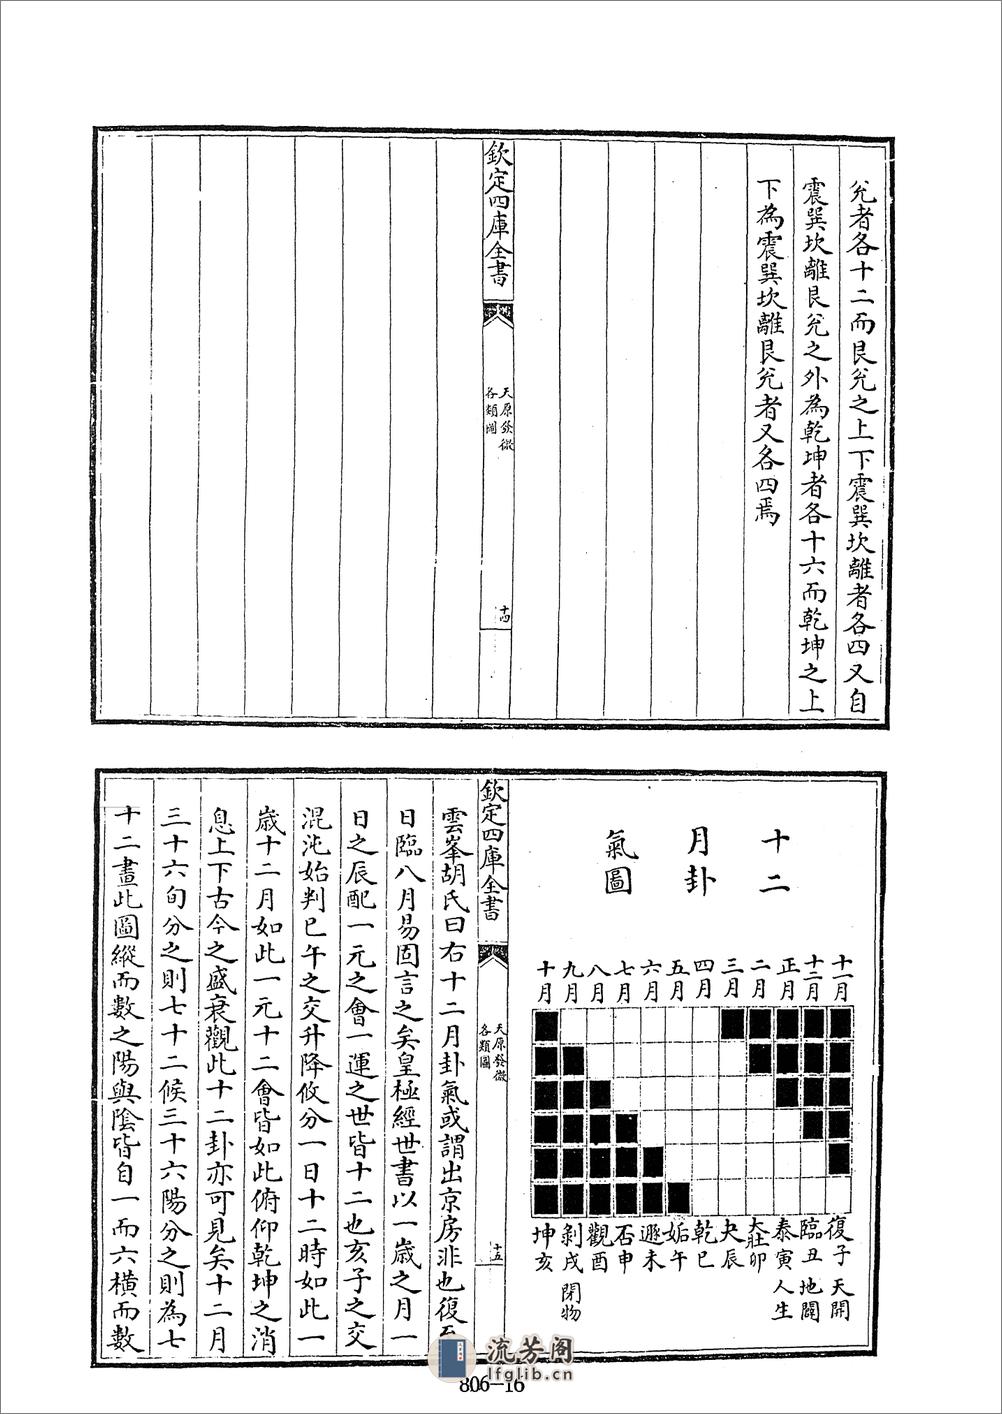 兊者各十二而艮兊之上下震巽坎離者各四又自
震巽坎離艮兊之外為乾坤者各十六而乾坤之上
下為震巽坎離艮兊者又各四焉
欽定四庫全書
天原發微
各類圖
十四
十二
月卦
氣圖
十一月
十二月
正月
二月
三月
四月
五月
六月
七月
八月
九月
十月
復子 天開
臨丑 地闢
泰寅 人生
大壯卯
夬辰
乾巳
姤午
遯未
否申
觀酉
剝戌 閉物
坤亥
欽定四庫全書
天原發微
各類圖
十五
雲峯胡氏曰右十二月卦氣或謂出京房非也復至
日臨八月易固言之矣皇極經世書以一歲之月一
日之辰配一元之會一運之世皆十二也亥子之交
混沌始判巳午之交升降攸分一日十二時如此一
歲十二月如此一元十二會皆如此俯仰乾坤之消
息上下古今之盛衰觀此十二卦亦可見矣十二月
三十六旬分之則七十二候三十六陽分之則為七
十二畫此圖縱而數之陽與陰皆自一而六橫而數
流芳阁
lfglib.cn
806-16